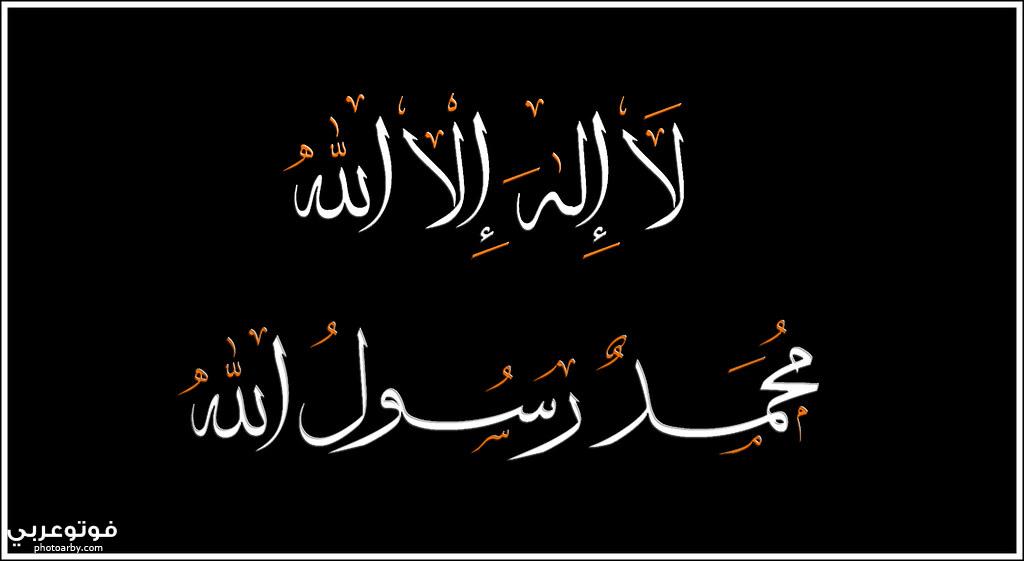 لَا إِلهَ إِلَّا اللَّهُ
مُحَمَدٌ رَسُولُ اللَّهُ
فوتوعربي
photoarby.com